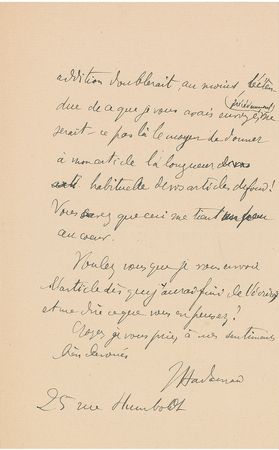 addition doublerait, au moins, l'éten
due de ce que je vous avais envoyé. Ne
(précédemment)
serait-ce pas là le moyen de donner
à mon article la longueur
habituelle de vos articles de fond?
Vous savez que ceci me tient un peu
au cœur.
Voulez vous que je vous envoie
l'article dès que j'aurai fini de l'écrire
et me dire ce que vous en pensez?
Croyez, je vous prie, à mes sentiments
bien dévoués
J Hadamard
25 rue Humboldt